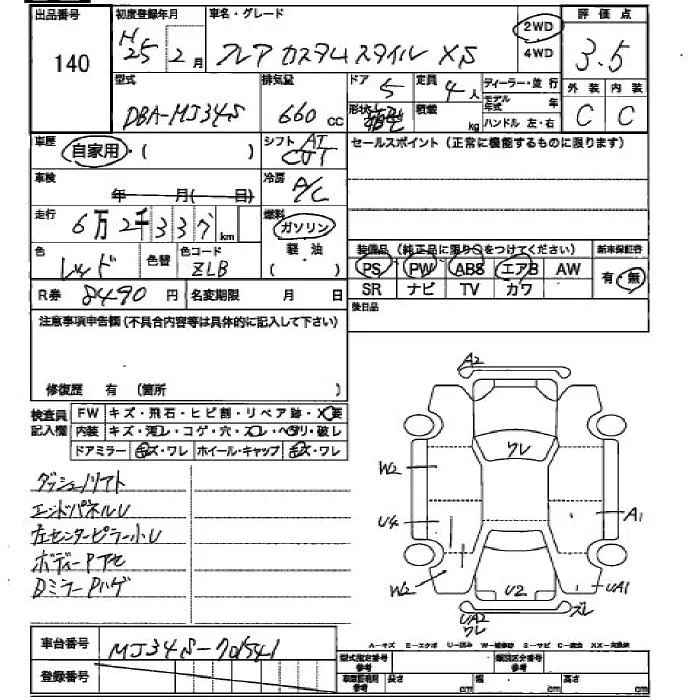 出品番号 初度登録年月 車名・グレード 評価点
140 H25年2月 フレア カスタムスタイル XS 2WD 4WD 3.5
型式 排気量 ドア 5 定員 4人 ディーラー・並行 外装 内装
DBA-MJ34S 660cc 形状 積載 kg モデル年式 年 ハンドル 左・右 C C
車歴 自家用・( ) シフト AT CVT セールスポイント (正常に機能するものに限ります)
車検 年 月( 日) 冷房 A/C
走行 6万2千337km 燃料 ガソリン 軽油 ( )
色 レッド 色替 色コード ZLB
装備品 (純正品に限り○をつけてください) 新車保証書
PS PW ABS エアB AW 有・無
SR ナビ TV カワ
R券 8490円 名変期限 月 日 後日品
注意事項申告欄 (不具合内容等は具体的に記入して下さい)
修復歴 有 (箇所
検査員記入欄 FW キズ・飛石・ヒビ割・リペア跡・X要
内装 キズ・汚レ・コゲ・穴・スレ・ヘタリ・破レ
ドアミラー キズ・ワレ ホイール・キャップ キズ・ワレ
ダッシュノリアト
エンドパネルU
左センターピラー小U
ボディーPアセ
DミラーPハゲ
A2
ワレ
W2
U4 A1
W2 U2 UA1
UA2 ワレ ズレ
A-キズ E-エクボ U-凹み W-補修跡 S-サビ C-腐食 XX-交換済
車台番号 MJ34S-701541
登録番号
型式指定番号 参考 類別区分番号 参考
車両証明用 参考 長さ cm 幅 cm 高さ cm